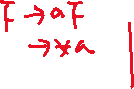 F → aF
→ *a